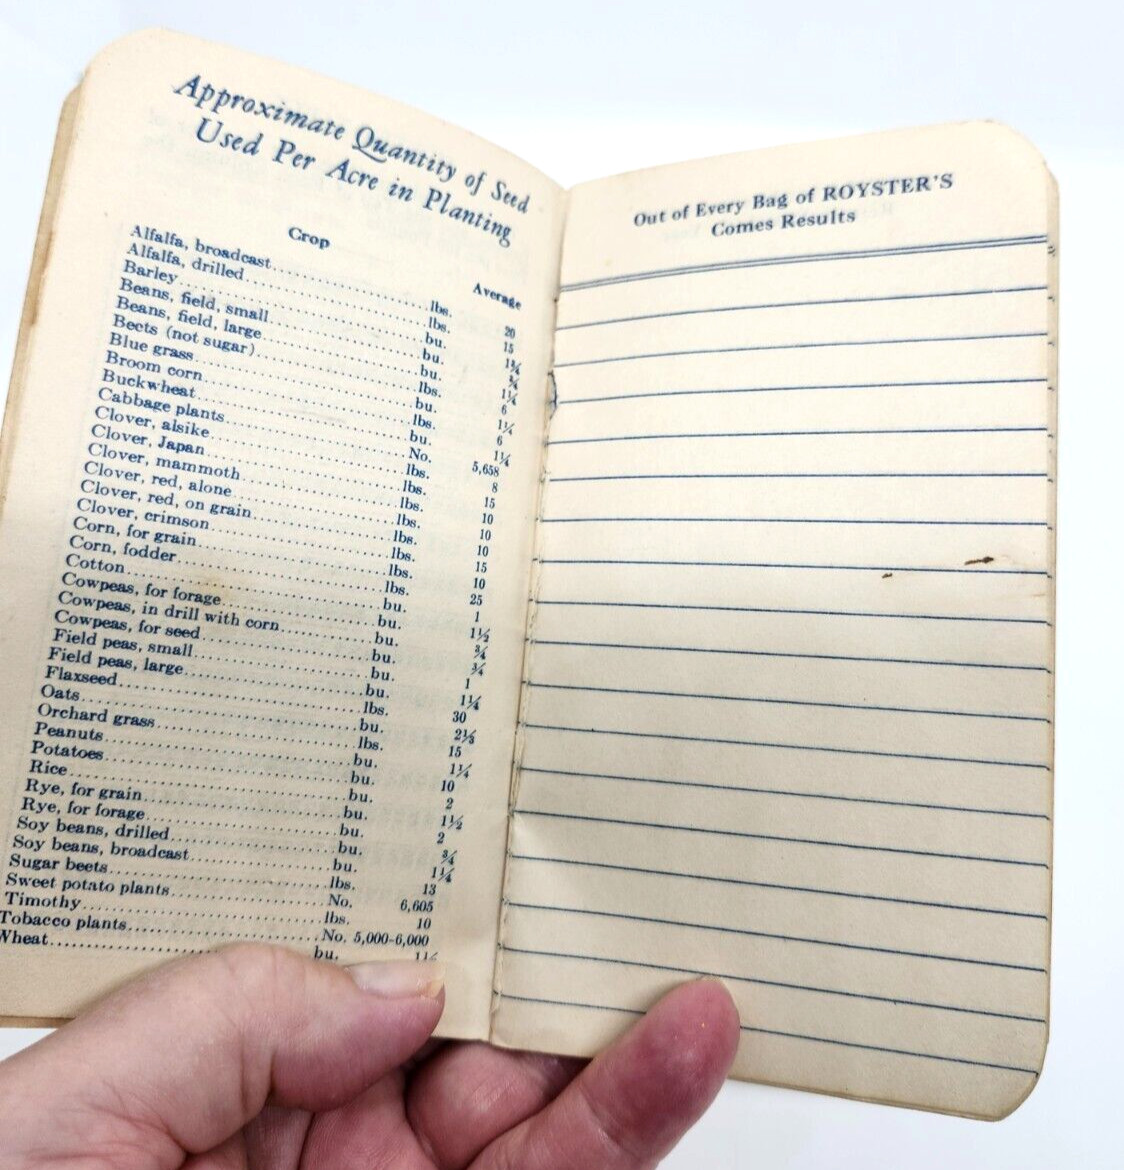 Approximate Quantity of Seed
Used Per Acre in Planting
Crop Average
Alfalfa, broadcast lbs. 20
Alfalfa, drilled lbs. 15
Barley bu. 1¾
Beans, field, small bu. ¾
Beans, field, large bu. 1¼
Beets (not sugar) lbs. 6
Blue grass bu. 1¼
Broom corn lbs. 6
Buckwheat bu. 1¼
Cabbage plants No. 5,658
Clover, alsike lbs. 8
Clover, Japan lbs. 15
Clover, mammoth lbs. 10
Clover, red, alone lbs. 10
Clover, red, on grain lbs. 10
Clover, crimson lbs. 15
Corn, for grain lbs. 10
Corn, fodder lbs. 25
Cotton bu. 1
Cowpeas, for forage bu. 1½
Cowpeas, in drill with corn bu. ¾
Cowpeas, for seed bu. ¾
Field peas, small bu. 1
Field peas, large bu. 1¼
Flaxseed lbs. 30
Oats bu. 2⅓
Orchard grass lbs. 15
Peanuts bu. 1¼
Potatoes bu. 10
Rice bu. 2
Rye, for grain bu. 1½
Rye, for forage bu. 2
Soy beans, drilled bu. ¾
Soy beans, broadcast bu. 1¼
Sugar beets lbs. 13
Sweet potato plants No. 6,605
Timothy lbs. 10
Tobacco plants No. 5,000-6,000
Wheat bu.
Out of Every Bag of ROYSTER'S
Comes Results